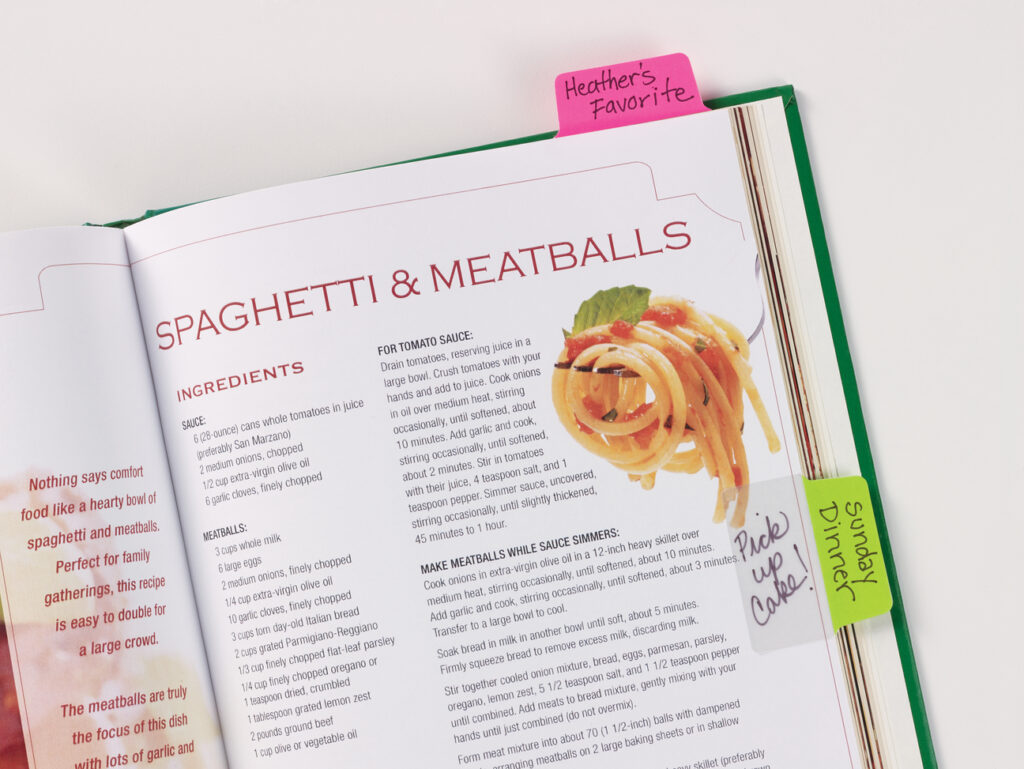 Heather's
Favorite
SPAGHETTI & MEATBALLS
INGREDIENTS
SAUCE:
6 (28-ounce) cans whole tomatoes in juice
(preferably San Marzano)
2 medium onions, chopped
1/2 cup extra-virgin olive oil
6 garlic cloves, finely chopped
MEATBALLS:
3 cups whole milk
6 large eggs
2 medium onions, finely chopped
1/4 cup extra-virgin olive oil
10 garlic cloves, finely chopped
3 cups torn day-old Italian bread
2 cups grated Parmigiano-Reggiano
1/3 cup finely chopped flat-leaf parsley
1/4 cup finely chopped oregano or
1 teaspoon dried, crumbled
1 tablespoon grated lemon zest
2 pounds ground beef
1 cup olive or vegetable oil
FOR TOMATO SAUCE:
Drain tomatoes, reserving juice in a
large bowl. Crush tomatoes with your
hands and add to juice. Cook onions
in oil over medium heat, stirring
occasionally, until softened, about
10 minutes. Add garlic and cook,
stirring occasionally, until softened,
about 2 minutes. Stir in tomatoes
with their juice, 4 teaspoon salt, and 1
teaspoon pepper. Simmer sauce, uncovered,
stirring occasionally, until slightly thickened,
45 minutes to 1 hour.
MAKE MEATBALLS WHILE SAUCE SIMMERS:
Cook onions in extra-virgin olive oil in a 12-inch heavy skillet over
medium heat, stirring occasionally, until softened, about 10 minutes.
Add garlic and cook, stirring occasionally, until softened, about 3 minutes.
Transfer to a large bowl to cool.
Soak bread in milk in another bowl until soft, about 5 minutes.
Firmly squeeze bread to remove excess milk, discarding milk.
Stir together cooled onion mixture, bread, eggs, parmesan, parsley,
oregano, lemon zest, 5 1/2 teaspoon salt, and 1 1/2 teaspoon pepper
until combined. Add meats to bread mixture, gently mixing with your
hands until just combined (do not overmix).
Form meat mixture into about 70 (1 1/2-inch) balls with dampened
arranging meatballs on 2 large baking sheets or in shallow
heavy skillet (preferably
Pick
up
Cake!
Sunday
Dinner
Nothing says comfort
food like a hearty bowl of
spaghetti and meatballs.
Perfect for family
gatherings, this recipe
is easy to double for
a large crowd.
The meatballs are truly
the focus of this dish
with lots of garlic and